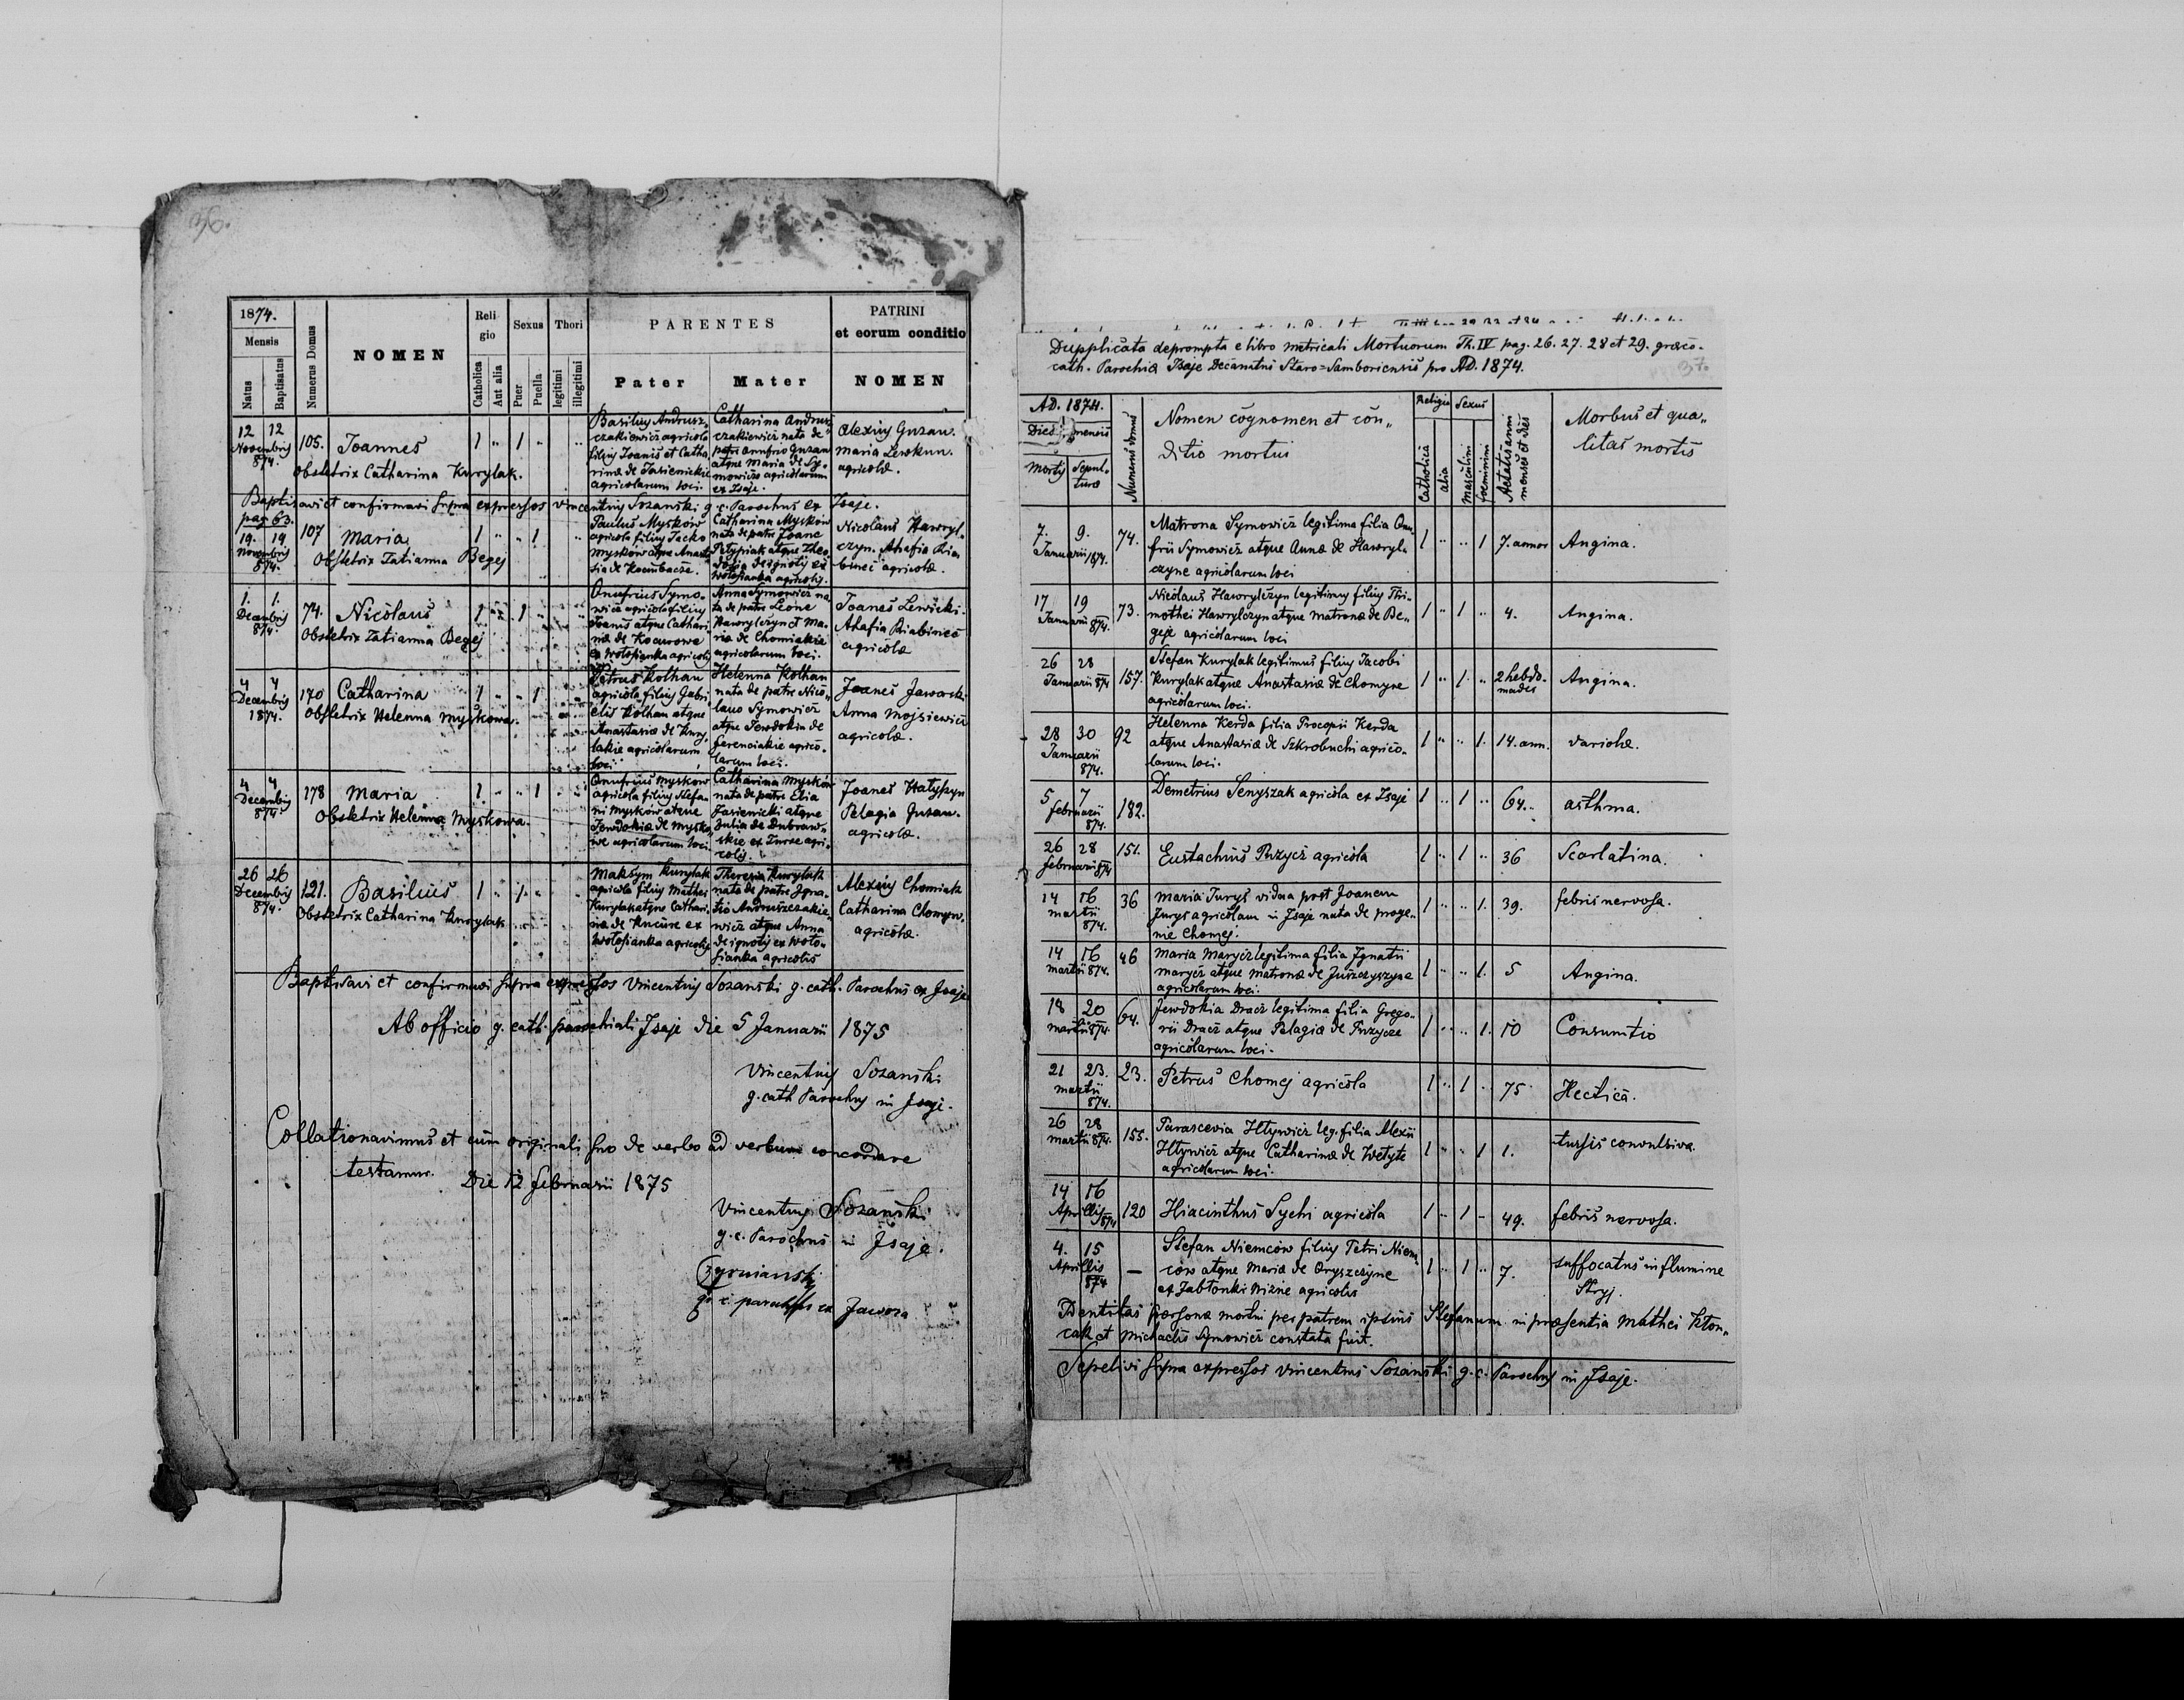 36.
1874.
Mensis
Natus
Baptisatus
Numerus Domus
NOMEN
Reli
gio
Catholica
Aut alia
Sexus
Puer
Puella
Thori
legitimi
illegitimi
PARENTES
Pater
Mater
PATRINI
et eorum conditio
NOMEN
12 12
Novembris
874.
105.
Joannes
Obstetrix Catharina Kurylak.
1 " 1 "
Basilius Andrusz-
czakiewicz agricola
filius Joanis et Catha
rinæ de Jasienickie
agricolarum loci.
Catharina Andrusz
czakiewicz nata de
patre Onufrio Guzan
atque Maria de Sy-
mowicz agricolarum
ex Isaje.
Alexius Guzan.
Maria Lewkun.
agricolæ.
Baptisavi et confirmavi supra expressos Vincentius Sozanski g. c. Parochus ex Isaje.
pag 63.
19. 19
Novembris
874.
107
Maria
Obstetrix Tatianna Begej
1 " " 1
Paulus Mysków
agricola filius Jacko
Mysków atque Anasta
sia de Kocubacze.
Catharina Mysków
nata de patre Joane
Petysiak atque Theo
dosia de ignotis ex
Wołosianka agricolis.
Nicolaus Hawryl-
czyn. Ahafia Ria
bineć agricolæ.
1. 1.
Decembris
874.
74.
Nicolaus
Obstetrix Tatianna Begej
1 " 1 "
Onufrius Symo-
wicz agricola filius
Joanis atque Cathari
næ de Kocurowe
ex Wołosianka agricolis
Anna Symowicz na
ta de patre Leone
Hawrylczyn et Ma-
ria de Chomiakie
agricolarum loci.
Joanes Lewicki.
Ahafia Riabineć
agricolæ
4 4
Decembris
1874.
170
Catharina
Obstetrix Helenna Myskowa.
1 " " 1
Petrus Kolhan
agricola filius Gabri
elis Kolhan atque
Anastasiæ de Kury
lakie agricolarum
loci
Helenna Kolhan
nata de patre Nico-
lauo Symowicz
atque Jewdokia de
ferenciakie agrico-
larum loci.
Joanes Jaworski
Anna Mojsiewicz
agricolæ.
4 4
Decembris
874.
178
Maria
Obstetrix Helenna Myskowa.
1 " " 1
Onufrius Mysków
agricola filius Stefa-
ni Mysków atque
Jewdokiæ de Mysko
we agricolarum loci
Catharina Mysków
nata de patre Elia
Jasienicki atque
Julia de Dubraw-
skie ex Turze agri-
colis.
Joanes Hatysyn
Pelagia Guzan.
agricolæ.
26 26
Decembris
874.
121.
Basilius
Obstetrix Catharina Kurylak
1 " 1. "
Maksym Kurylak
agricola filius Mathei
Kurylak atque Cathari-
næ de Kucure ex
Wołosianka agricolis
Theresia Kurylak
nata de patre Igna-
tio Andruszczakie-
wicz atque Anna
de ignotis ex Woło-
sianka agricolis
Alexius Chomiak
Catharina Chomyn.
agricolæ
Baptisavi et confirmavi supra expressos Vincentius Sozanski g. cath. Parochus ex Isaje
Ab officio g. cath. parochiali Isaje die 5 Januarii 1875
Vincentius Sozanski
g. cath Parochus in Isaje.
Collationavimus et cum originali suo de verbo ad verbum concordare
testamur. Die 12 februarii 1875
Vincentius Sozanski
g. c. Parochus in Isaje.
gr. c. parochus ex Jawora
Dupplicata deprompta e libro metricali Mortuorum Th. IV pag. 26. 27. 28 et 29. græco-
cath. Parochiæ Isaje Decanatus Staro=Samboriensis pro AD. 1874.
37.
AD. 1874.
Dies mensis
Mortis
Sepul-
turæ
Numerus domus
Nomen cognomen et con-
ditio mortui
Religio
Catholica
alia
Sexus
masculini
foeminini
Aetatis anni
menses et dies
Morbus et qua-
litas mortis
7. 9.
Januarii 874.
74.
Matrona Symowicz legitima filia Onu
frii Symowicz atque Annæ de Hawryl-
czyne agricolarum loci
1 " " 1
7. annor
Angina.
17 19
Januarii 874.
73.
Nicolaus Hawrylczyn legitimus filius Thi-
mothei Hawrylczyn atque Matronæ de Be-
geje agricolarum loci
1 " 1 "
4.
Angina.
26 28
Januarii 874
157.
Stefan Kurylak legitimus filius Jacobi
Kurylak atque Anastasiæ de Chomyne
agricolarum loci.
1 " 1. "
2 hebdo-
mades
Angina.
28 30
Januarii
874.
92
Helenna Kerda filia Procopii Kerda
atque Anastasiæ de Szkrobuchi agrico-
larum loci.
1 " " 1.
14. ann.
variolæ.
5 7
februarii
874.
182.
Demetrius Senyszak agricola ex Isaje
1 " 1 "
64..
asthma.
26 28
februarii 874
151.
Eustachius Puzycz agricola
1 " 1 "
36
Scarlatina.
14 16
martii
874.
36
Maria Jurys vidua post Joanem
Jurys agricolam in Isaje nata de proge-
nie Chomej.
1 " " 1.
39.
febris nervosa.
14 16
martii 874.
46
Maria Marycz legitima filia Ignatii
Marycz atque Matronæ de Juszczyszyne
agricolarum loci.
1 " " 1.
5
Angina.
18 20
martii 874.
64.
Jewdokia Dracz legitima filia Grego-
rii Dracz atque Pelagiæ de Puzycze
agricolarum loci.
1 " " 1.
10
Consumtio
21 23.
martii
874.
23.
Petrus Chomej agricola
1 " 1 "
75
Hectica.
26 28
martii 874.
155.
Parascevia Iltywicz leg. filia Alexii
Iltywicz atque Catharinæ de
agricolarum loci.
1 " " 1
1.
tussis convulsiva.
14 16
Aprilis 874
120
Hiacinthus Sychi agricola
1 " 1 -
49.
febris nervosa.
4. 15
Aprilis
874
—
Stefan Niemców filius Petri Niem
ców atque Mariæ de Oryszczyne
ex Jabłonki Nizne agricolis
1 " 1 "
7.
suffocatus in flumine
Stryj.
Identitas personæ mortui per patrem ipsius Stefanum in præsentia Mathei
et Michaelis Symowicz constata fuit.
Sepelivi supra expressos Vincentius Sozanski g. c. Parochus in Isaje.